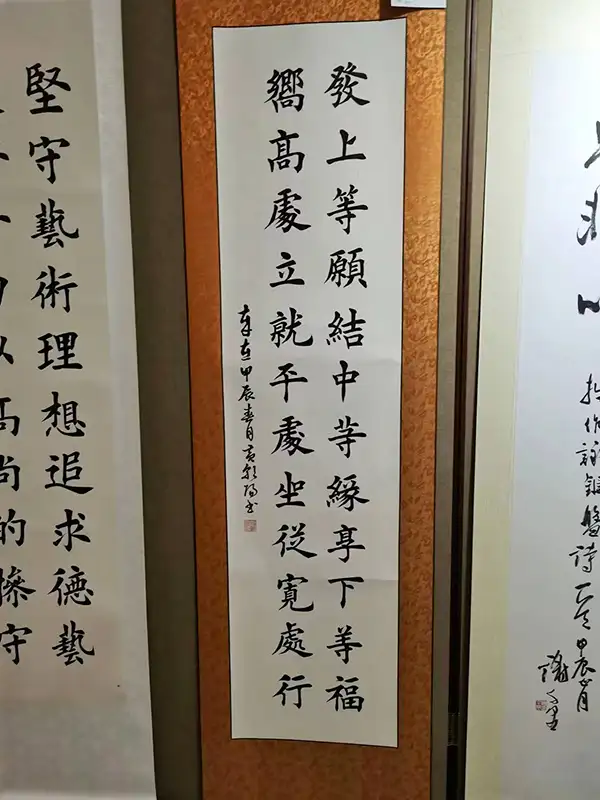 拙作詠鍵盤詩一首
發上等願結中等緣享下等福
嚮高處立就平處坐從寬處行
甲辰春月
堅守藝術理想追求德藝
以高尚的操守